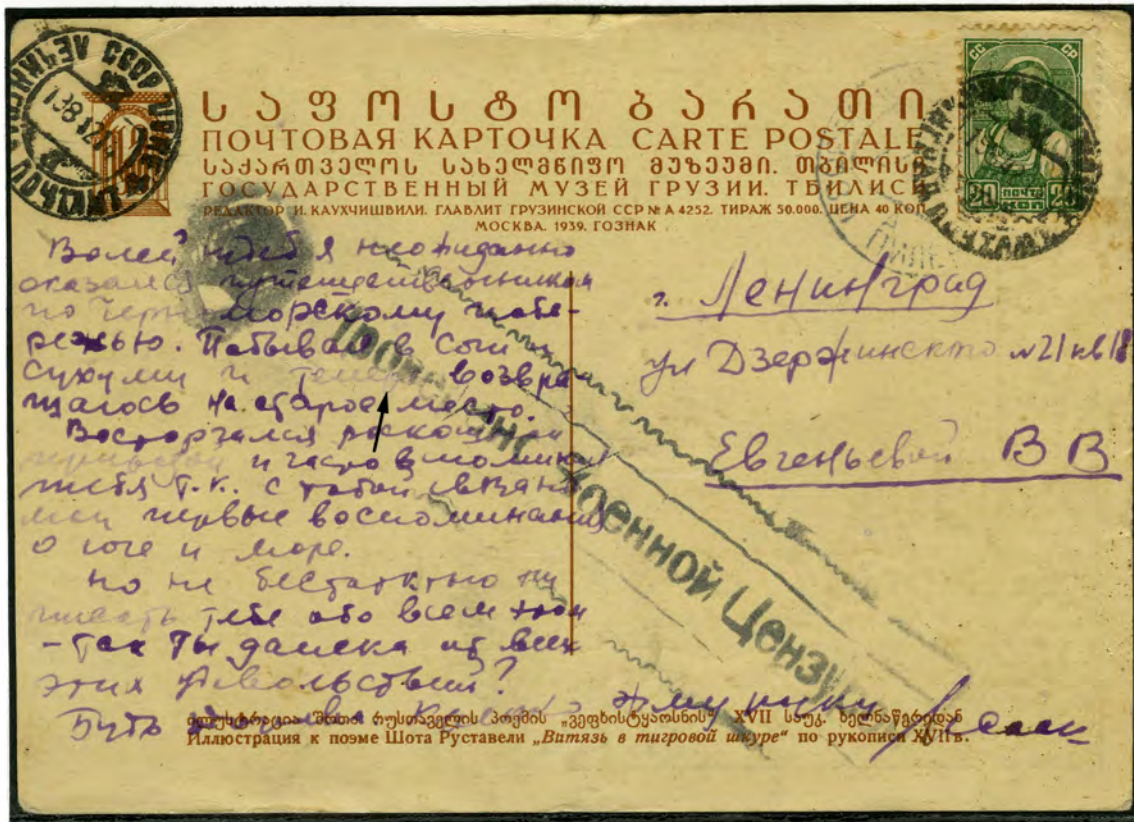 საფოსტო ბარათი
ПОЧТОВАЯ КАРТОЧКА CARTE POSTALE
საქართველოს სახელმწიფო მუზეუმი. თბილისი
ГОСУДАРСТВЕННЫЙ МУЗЕЙ ГРУЗИИ. ТБИЛИСИ
РЕДАКТОР И. КАУХЧИШВИЛИ. ГЛАВЛИТ ГРУЗИНСКОЙ ССР № А 4252. ТИРАЖ 50.000. ЦЕНА 40 КОП.
МОСКВА. 1939. ГОЗНАК
СС СР
20 ПОЧТА 20
КОП
Волей судеб я неожиданно
оказался путешественником
по Черноморскому побе-
режью. Побывал в Сочи и
Сухуми и теперь возвра-
щаюсь на старое место.
Восторгался роскошной
природой и часто вспоминал
тебя т.к. с тобой связаны
мои первые воспоминания
о юге и море.
Но не бестактно ли
писать тебе обо всем этом
- так ты далека от всех
этих
Будь здорова жму руку
г. Ленинград
ул Дзержинского № 21 кв 18
Евгеньевой В В
Просмотрено Военной Цензурой
ილუსტრაცია შოთა რუსთაველის პოემის „ვეფხისტყაოსნის" XVII საუკ. ხელნაწერიდან
Иллюстрация к поэме Шота Руставели „Витязь в тигровой шкуре" по рукописи XVII в.